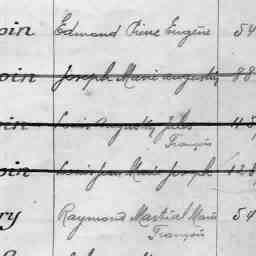 oin Edmond Pierre Eugène 54
oin Joseph Marie Augustin 88
oin Louis Augustin Jules 118
François
oin Louis Jean Marie Joseph 128
ry Raymond Martial Marie 54
François